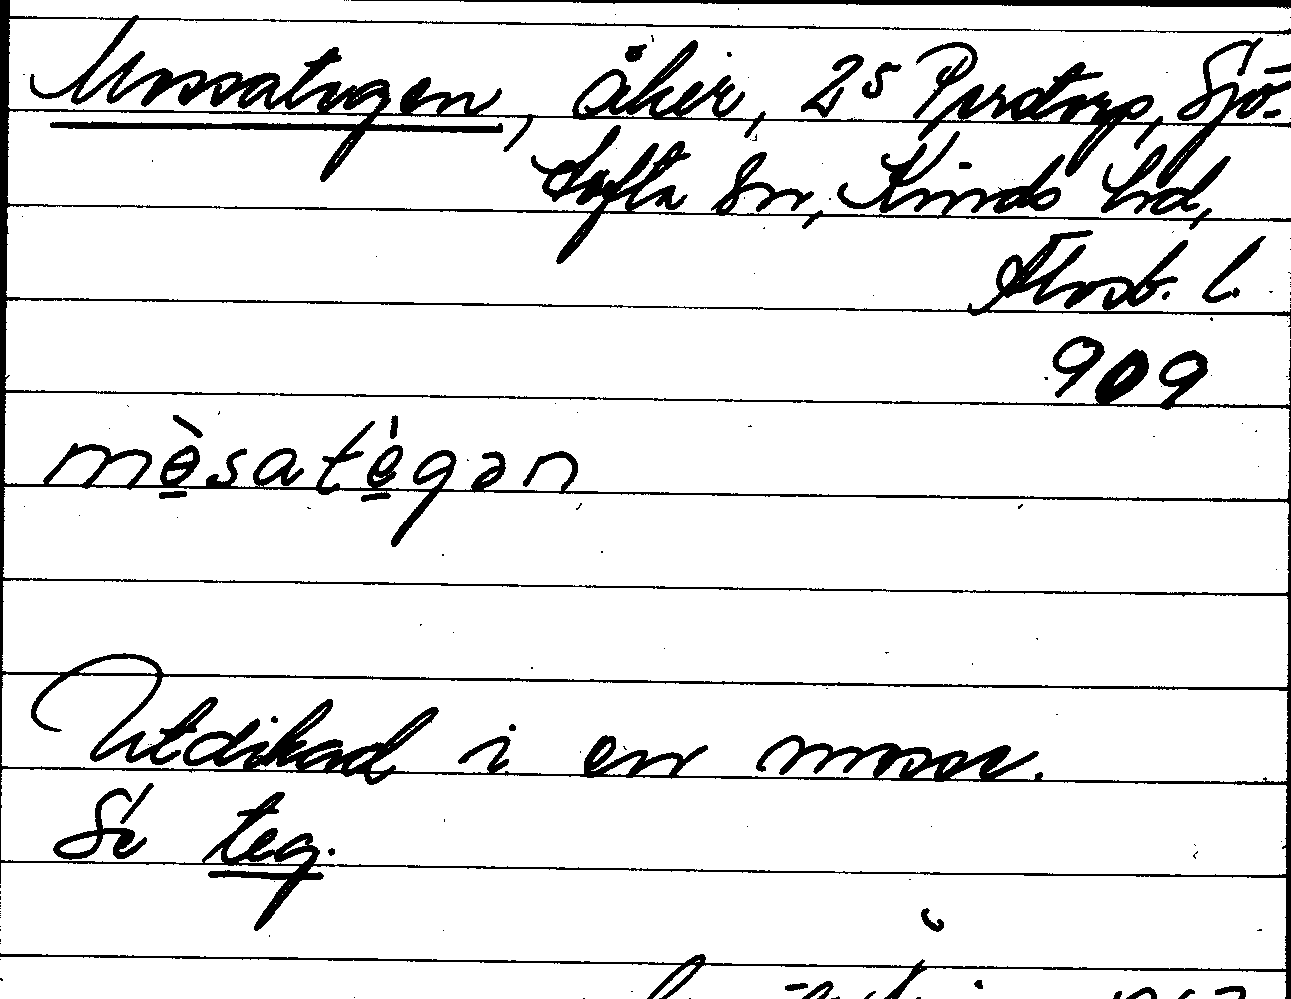 Mossategen, åker, 2⁵ Pustorp, Sjö-
tofta sn, Kinds hd,
Älvsb. l.
909
mèsatégən
Utdikad i en mosse.
Se teg.